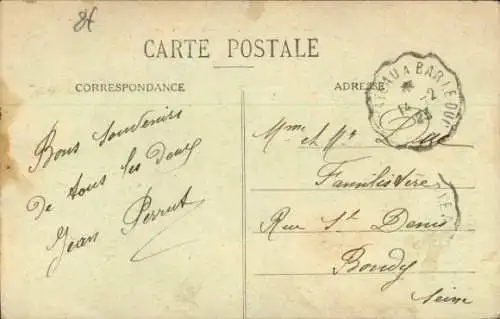 CARTE POSTALE
CORRESPONDANCE
ADRESSE
A BAR LE DUC
14 -2
Bons Souvenirs
de tous les deux
Jean Perrut
Mme et Mr Duc
Familistère
Rue St Denis
Bondy
Seine